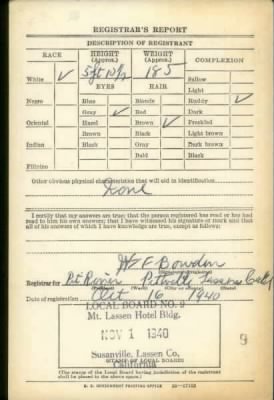 REGISTRAR'S REPORT
DESCRIPTION OF REGISTRANT
RACE HEIGHT (Approx.) WEIGHT (Approx.) COMPLEXION
White ✓ 5 ft 10½ 185 Sallow
EYES HAIR Light
Negro Blue Blonde Ruddy ✓
Gray ✓ Red Dark
Oriental Hazel Brown ✓ Freckled
Brown Black Light brown
Indian Black Gray Dark brown
Bald Black
Filipino
Other obvious physical characteristics that will aid in identification
None
I certify that my answers are true; that the person registered has read or has had
read to him his own answers; that I have witnessed his signature or mark and that
all of his answers of which I have knowledge are true, except as follows:
Bowden
Registrar for Pit River Pittville Lassen Calif
Date of registration Oct 16 1940
LOCAL BOARD NO. 9
Mt. Lassen Hotel Bldg.
NOV 1 1940
9
Susanville, Lassen Co.
(STAMP OF LOCAL BOARD)
California
(The stamp of the Local Board having jurisdiction of the registrant
shall be placed in the above space.)
U. S. GOVERNMENT PRINTING OFFICE 16—17105